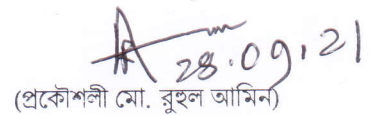 28.09.21
(প্রকৌশলী মো. রুহুল আমিন)